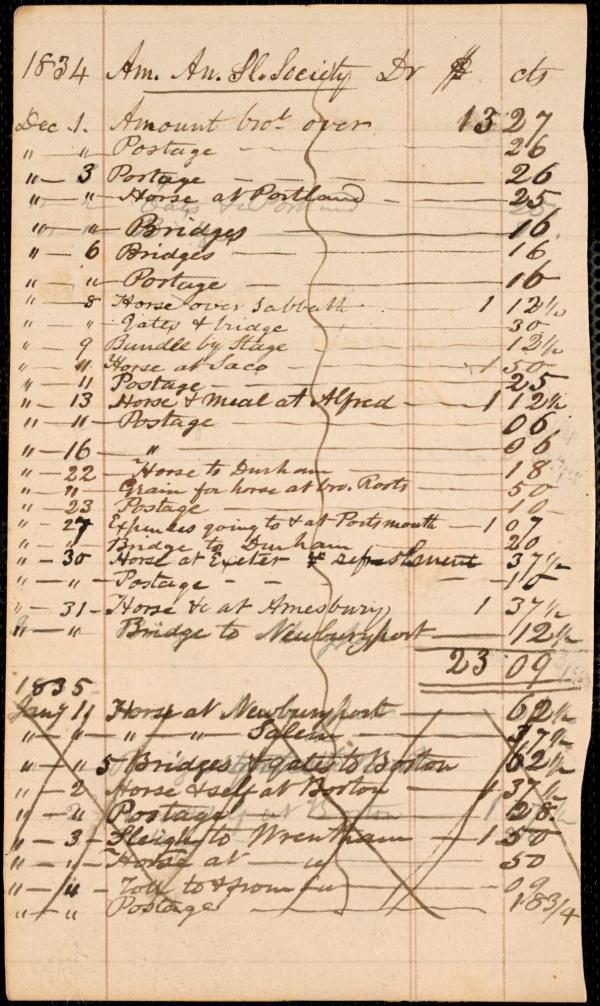 1834 Am. An. Sl. Society Dr $ cts
Dec 1. Amount bro.t over 13 27
" " Postage 26
" 3 Postage 26
" " Horse at Portland 25
" " Bridges 16
" 6 Bridges 16
" " Postage 16
" 8 Horse over Sabbath 1 12 1/2
" " Gates & bridge 30
" 9 Bundle by Stage 12 1/2
" 11 Horse at Saco 1 50
" 11 Postage 25
" 13 Horse & meal at Alfred 1 12 1/2
" " Postage 06
" 16 " 06
" 22 Horse to Durham 18
" " Grain for horse at bro. Roots 50
" 23 Postage 10
" 27 Expenses going to & at Portsmouth 1 07
" " Bridge to Durham 20
" 30 Horse at Exeter & refreshment 37 1/2
" " Postage
" 31 Horse &c at Amesbury 1 37 1/2
" " Bridge to Newburyport 12 1/2
23 09
1835
Jany 1 Horse at Newburyport 62 1/2
" " " " Salem 37 1/2
" " 5 Bridges & gates to Boston 62 1/2
" 2 Horse & self at Boston 1 37 1/2
" " Postage 28.
" 3 Sleigh to Wrentham 1 50
" " Horse at " 50
" " Toll to & from " 09
" " Postage 18 3/4